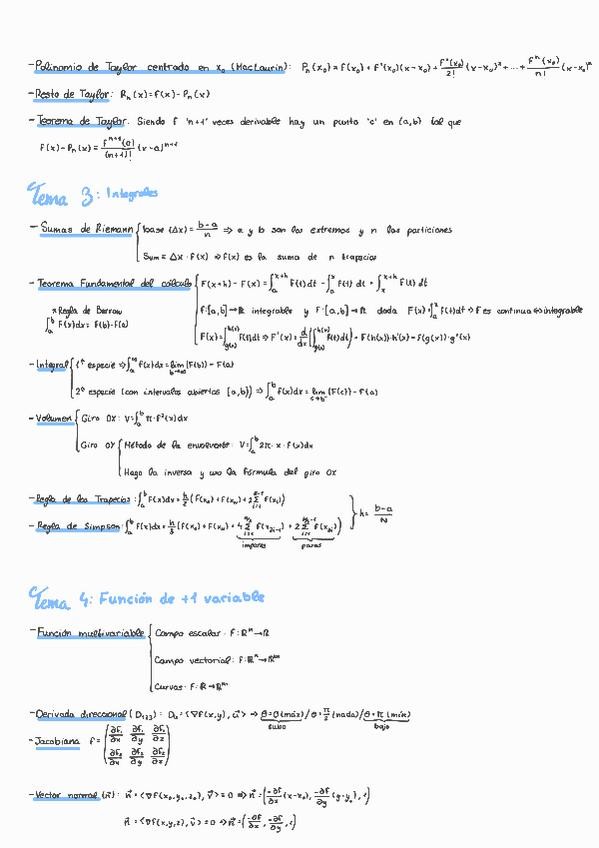 - Polinomio de Taylor centrado en x₀ (MacLaurin): Pₙ(x₀) = f(x₀) + f'(x₀)(x-x₀) + f''(x₀)/2! (x-x₀)² + ... + fⁿ(x₀)/n! (x-x₀)ⁿ
- Resto de Taylor: Rₙ(x) = f(x) - Pₙ(x)
- Teorema de Taylor. Siendo f 'n+1' veces derivable hay un punto 'c' en (a,b) tal que
f(x) - Pₙ(x) = fⁿ⁺¹(c)/(n+1)! (x-a)ⁿ⁺¹
Tema 3: Integrales
- Sumas de Riemann { base (Δx) = b-a/n ⇒ a y b son los extremos y n las particiones
Sum = Δx · f(x) ⇒ f(x) es la suma de n trapecios
- Teorema Fundamental del cálculo { F(x+h) - F(x) = ∫ₐˣ⁺ʰ f(t) dt - ∫ₐˣ f(t) dt = ∫ₓˣ⁺ʰ f(t) dt
* Regla de Barrow
f:[a,b] → ℝ integrable y F:[a,b] → ℝ dada F(x) = ∫ₐˣ f(t)dt ⇒ F es continua ⇔ integrable
∫ₐᵇ f(x)dx = F(b) - F(a)
F(x) = ∫g(x)h(x) f(t)dt ⇒ F'(x) = d/dx (∫g(x)h(x) f(t)dt) = f(h(x))·h'(x) - f(g(x))·g'(x)
- Integral { 1ª especie ⇒ ∫ₐ∞ f(x)dx = lim b→∞ (F(b)) - F(a)
2ª especie (con intervalos abiertos [a,b)) ⇒ ∫ₐᵇ f(x)dx = lim c→b⁻ (F(c)) - F(a)
- Volumen { Giro OX: V = ∫ₐᵇ π·f²(x)dx
Giro OY { Método de la envolvente: V = ∫ₐᵇ 2π·x·f(x)dx
Hago la inversa y uso la fórmula del giro OX
- Regla de los Trapecios: ∫ₐᵇ f(x)dx = h/2 (f(x₀) + f(xₙ) + 2Σ f(xᵢ))
} h = b-a/N
- Regla de Simpson: ∫ₐᵇ f(x)dx = h/3 (f(x₀) + f(xₙ) + 4Σ f(x₂ᵢ₋₁) + 2Σ f(x₂ᵢ))
impares pares
Tema 4: Función de +1 variable
- Función multivariable { Campo escalar. F: ℝⁿ → ℝ
Campo vectorial: F: ℝⁿ → ℝᵐ
Curvas: F: ℝ → ℝᵐ
- Derivada direccional (D₁₂₃): Dᵤ = <∇f(x,y), u⃗> ⇒ θ=0 (máx) / θ=π/2 (nada) / θ=π (mín)
sube bajo
- Jacobiana f = (∂f₁/∂x ∂f₁/∂y ∂f₁/∂z
∂f₂/∂x ∂f₂/∂y ∂f₂/∂z)
- Vector normal (n⃗): n⃗ = <∇f(x₀,y₀,z₀), v⃗> = 0 ⇒ n⃗ = (-∂f/∂x (x-x₀), -∂f/∂y (y-y₀), 1)
n⃗ = <∇f(x,y,z), v⃗> = 0 ⇒ n⃗ = (-∂f/∂x, -∂f/∂y, 1)